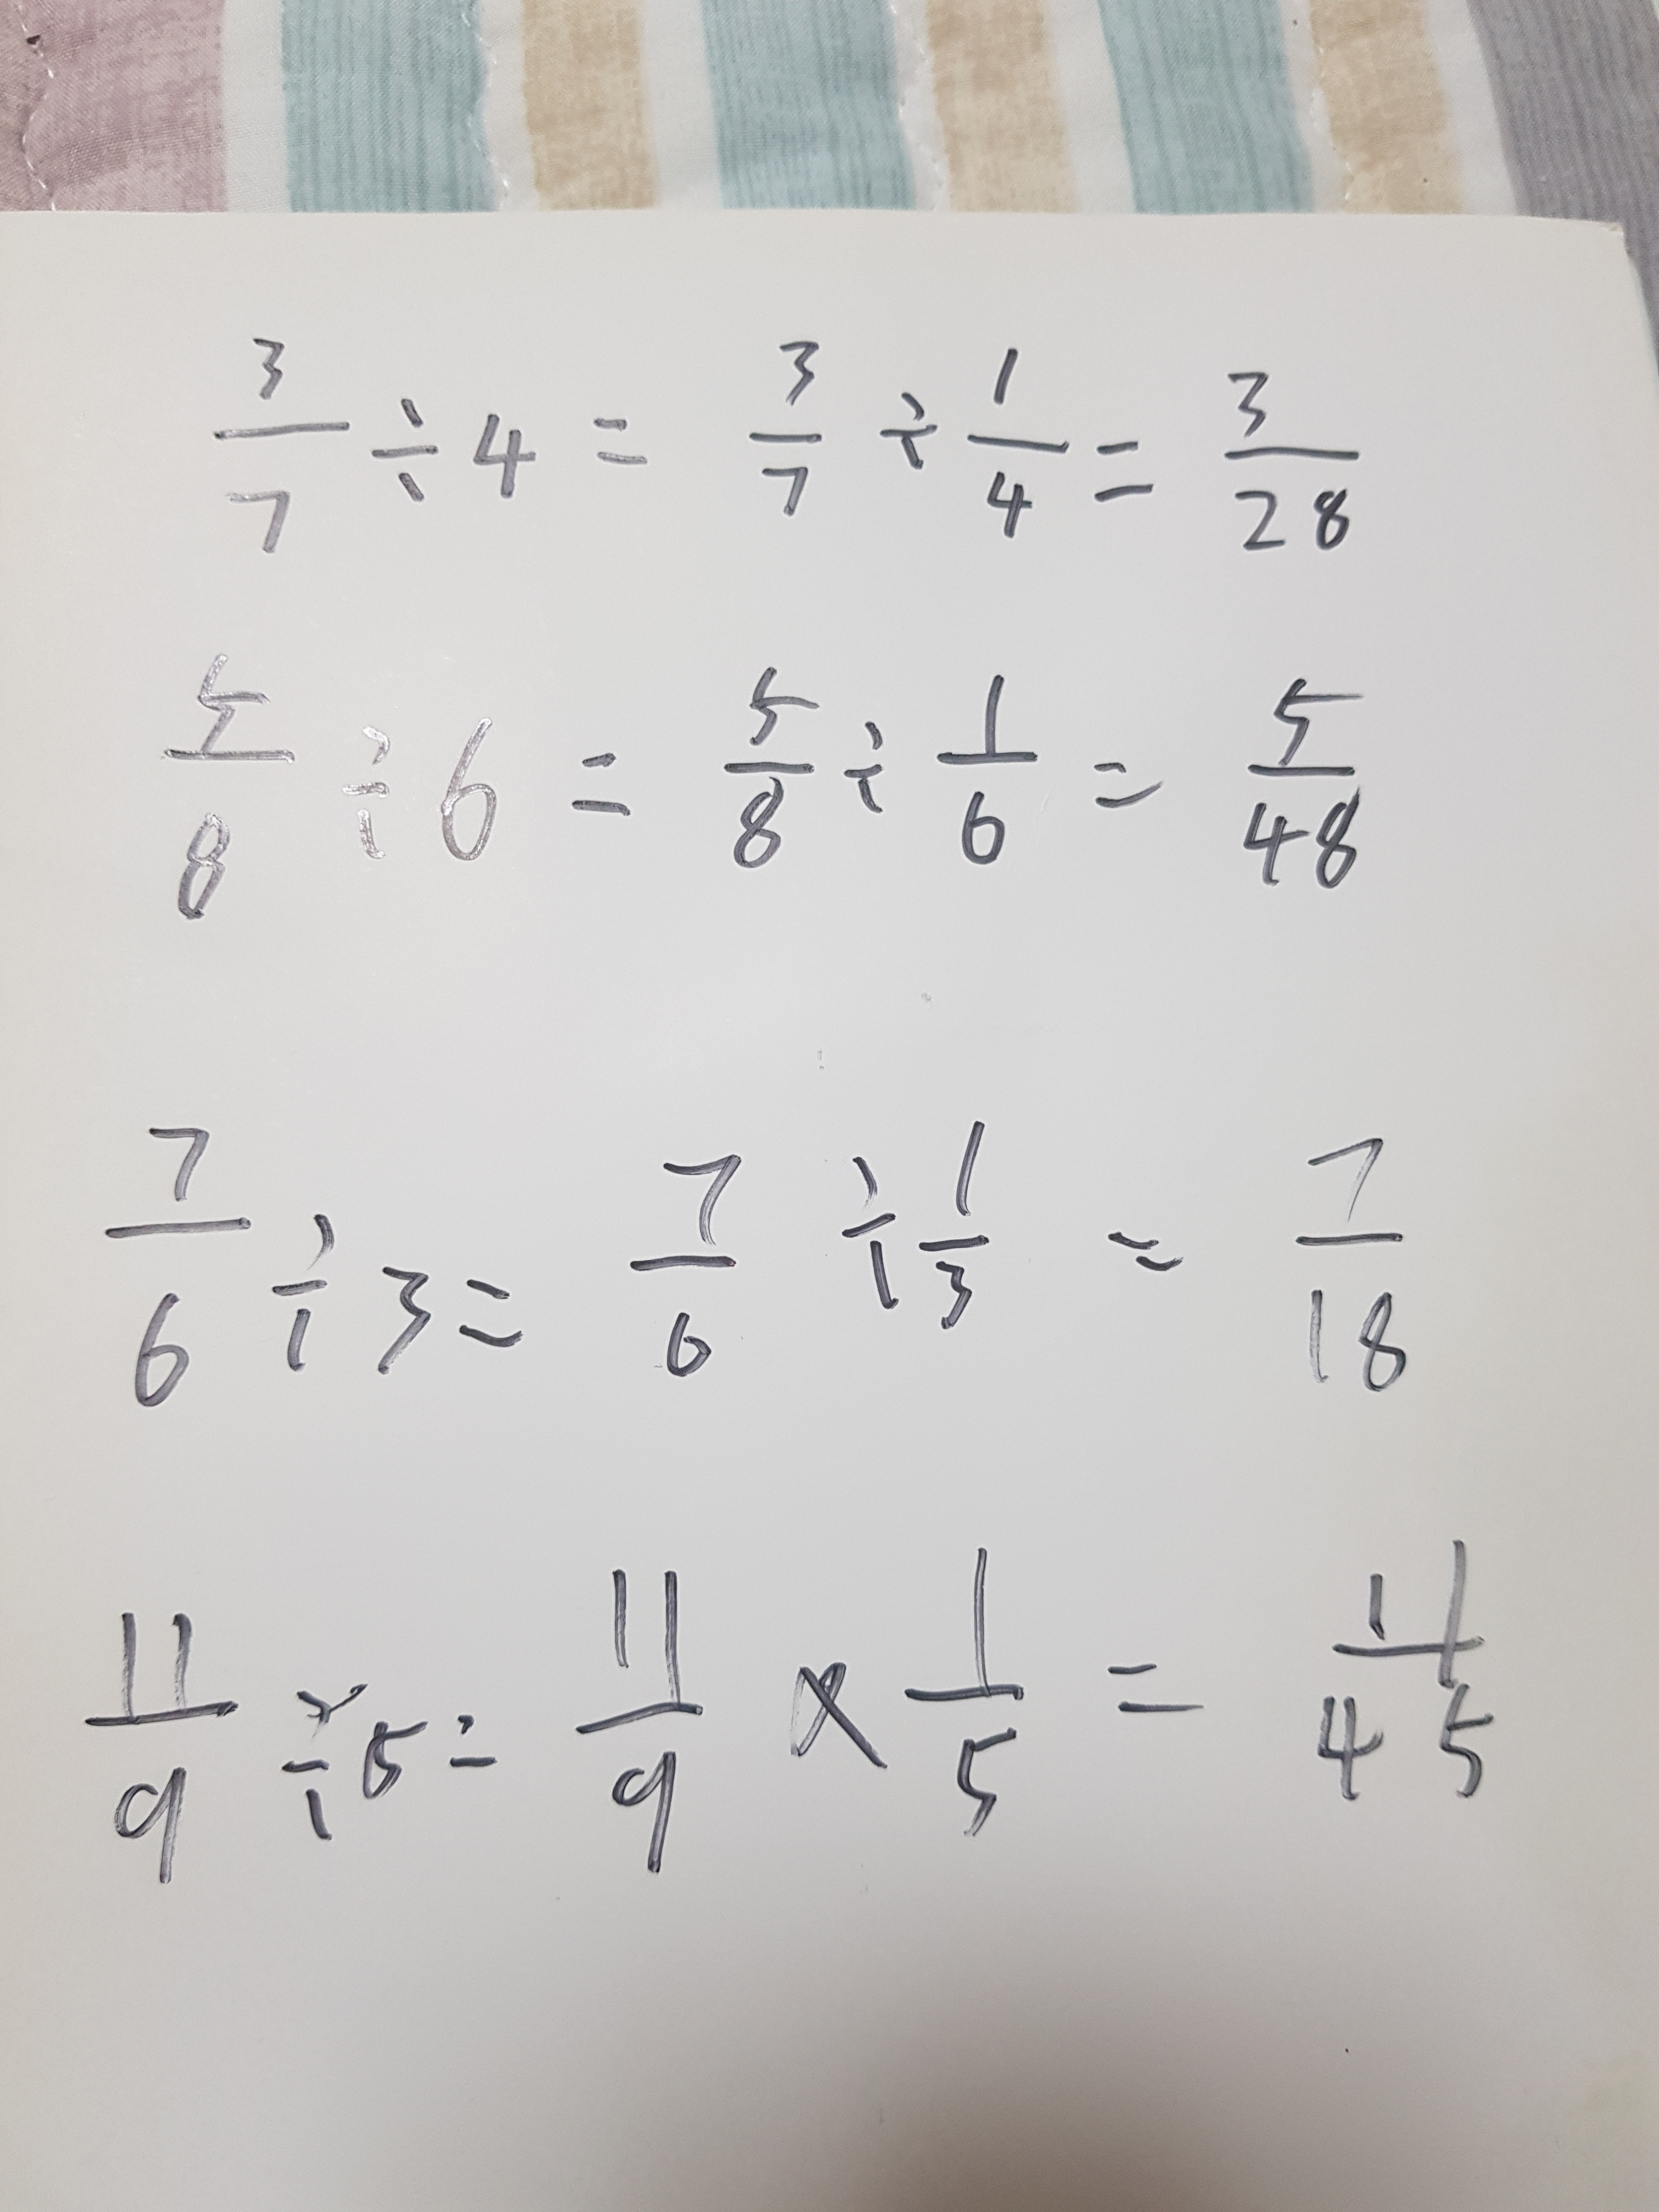 3/7 ÷ 4 = 3/7 ÷ 1/4 = 3/28
5/8 ÷ 6 = 5/8 ÷ 1/6 = 5/48
7/6 ÷ 3 = 7/6 ÷ 1/3 = 7/18
11/9 ÷ 5 = 11/9 × 1/5 = 11/45